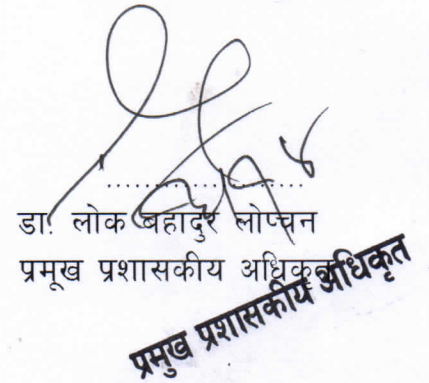 ....................
डा. लोक बहादुर लोप्चन
प्रमूख प्रशासकीय अधिकृत
प्रमुख प्रशासकीय अधिकृत